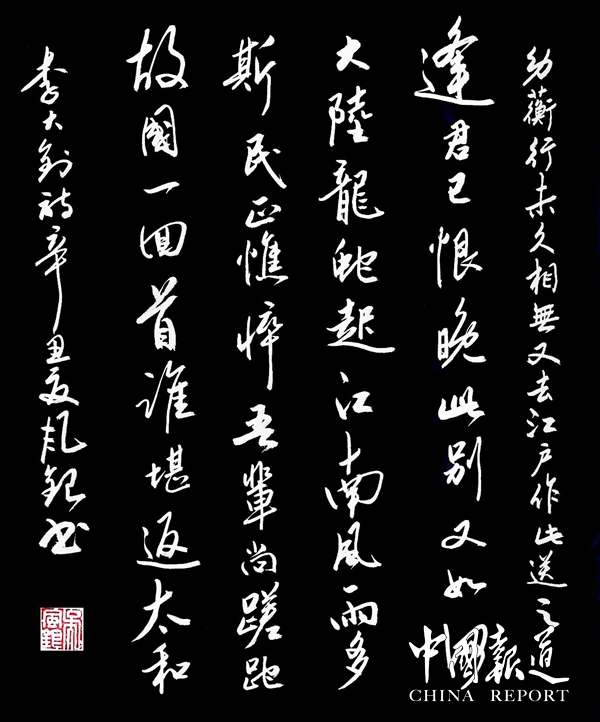 幼蘅行未久相無又去江戶作此送之
逢君已恨晚此別又如
大陸龍蛇起江南風雨多
斯民正憔悴吾輩尚蹉跎
故國一回首誰堪返太和
李大釗詩辛丑夏
中國報道
CHINA REPORT